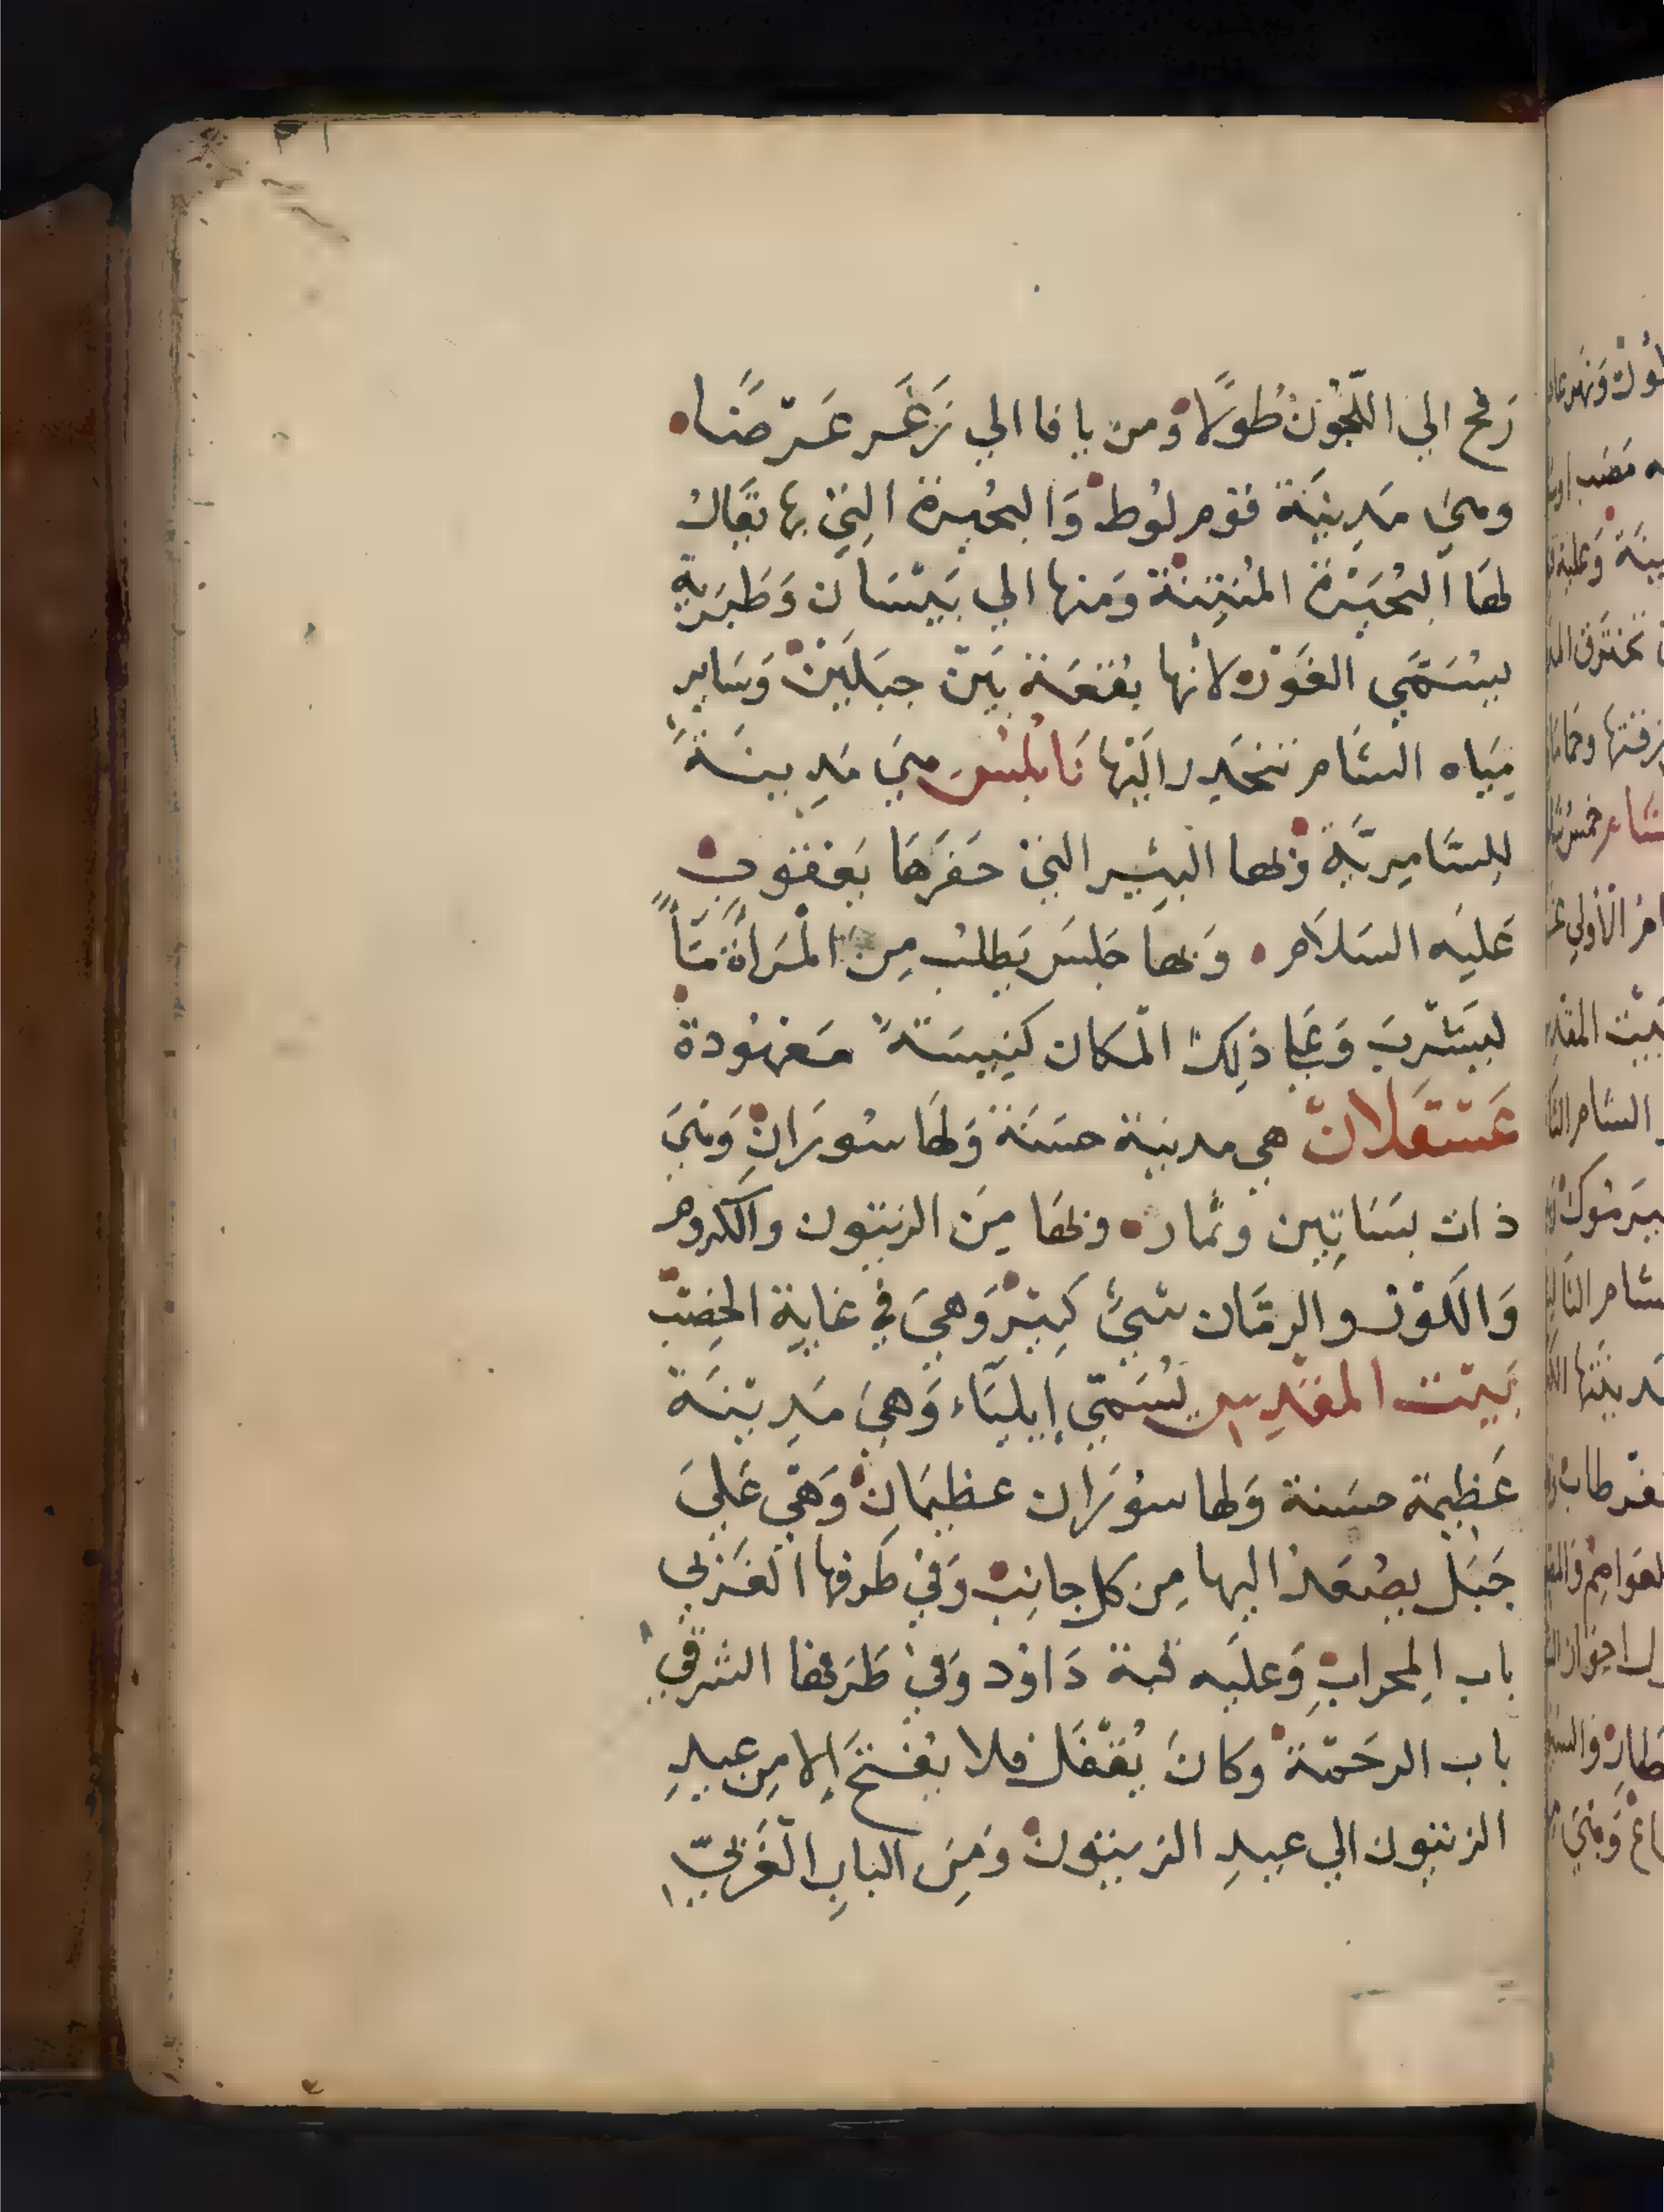 رفح الي اللَّجُون طُولًا وَمن يافا الي زَغَر عَرْضًا
وهيَ مَدِينَة قوم لُوط وَالبحُيرة التِي بِها يقَالُ
لهَا البُحَيْرَة المُنتِنَة وَمنها الي بَيْسَان وَطَبَريةِ
يسُمَّي الغَوْر لانها بُقعَة بَين جبَلَين وَسَايرِ
مِيَاه الشَام تنحَدِر اليْها نَابُلسُ هيَ مَدِينَةً
لِلسَّامِريَّة وَلها البيئير التي حَفرَهَا يَعقوب
عَليَه السَلَام وَبهَا جلسَ يَطلبُ مِن المْرَاَة مَآً
ليَشْربَ وَعَلي ذلِك المْكان كنِيسَةً مَعْهُودة
عَسْقلانْ هي مدينة حسَنَة وَلهَا سُورَانِ وَهيَ
ذات بسَاتِين وثمار وبهَا مِنَ الزيتون والكروم
وَاللوْز والرمَّان شيُ كِبيْر وَهيَ في غاية الخِصْب
بَيْت المقدِس يُسَمّي إيليَاء وَهيَ مَدِيْنَة
عَظيمة حسَنة وَلها سُورَان عظيمَان وَهي عَليَ
جَبَل يصْعَدُ اليها مِن كل جانِبْ وَفي طَرفها الغَرْبي
باب اِلمحرابِ وَعليَه قبة دَاوُد وَفي طَرَفها الشرقي
باب الرحَمْة وَكانَ يُقْفَل فلا يُفتَح إلا مِن عيدِ
الزيتون الي عيدِ الزيتونْ وَمِنَ البابِ الغَربيّ